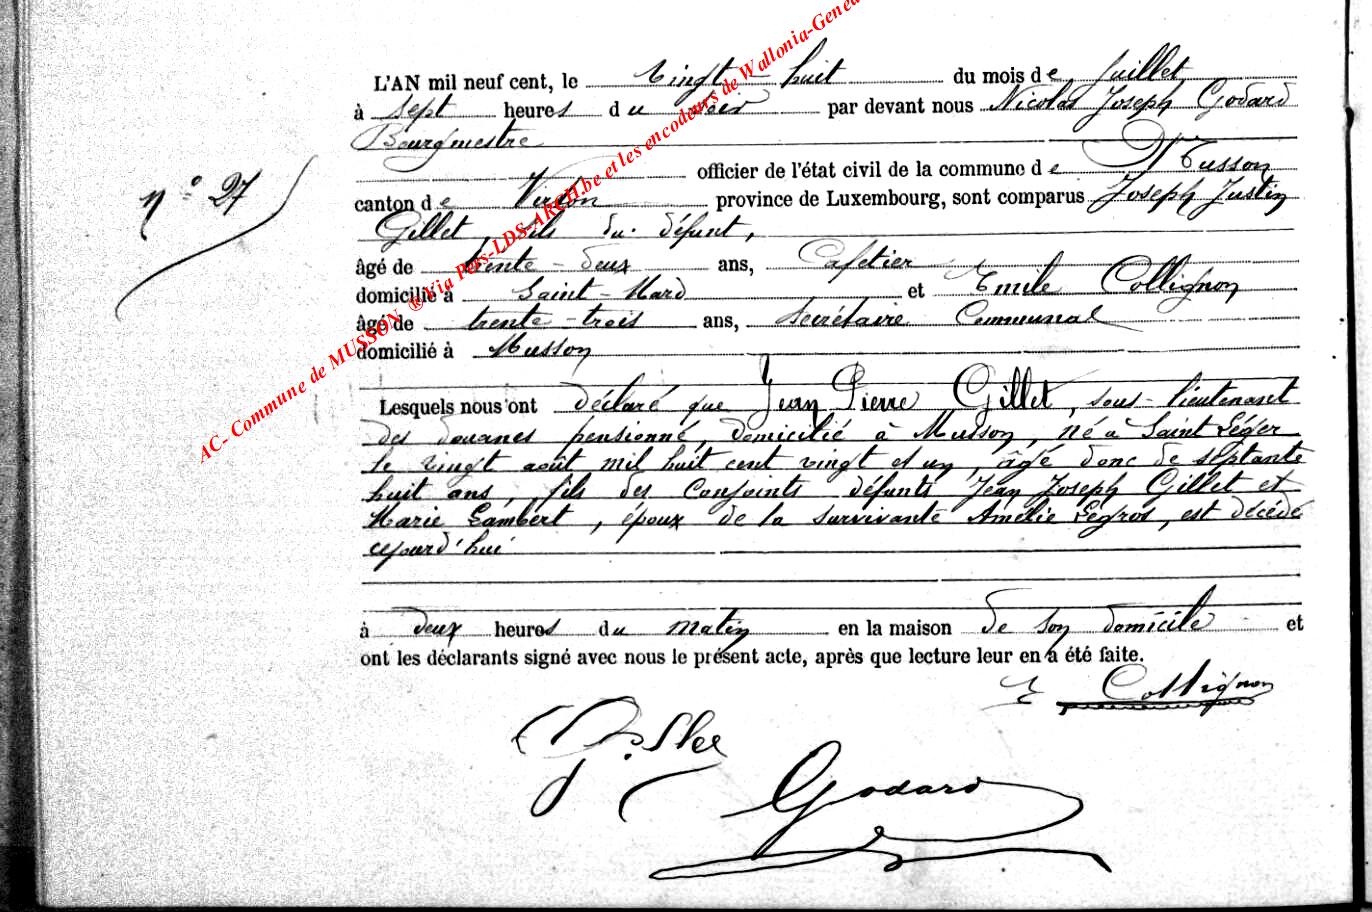 L'AN mil neuf cent, le vingt-huit du mois de Juillet
à sept heures du soir par devant nous Nicolas Joseph Godard
Bourgmestre
officier de l'état civil de la commune de Musson
n° 27
canton de Virton province de Luxembourg, sont comparus Joseph Justin
Gillet, fils du défunt,
âgé de trente-deux ans, Cafetier
domicilié à Saint-Mard et Emile Collignon
âgé de trente-trois ans, Secrétaire Communal
domicilié à Musson
Lesquels nous ont déclaré que Jean Pierre Gillet, sous-lieutenant
des douanes pensionné, domicilié à Musson, né à Saint Léger
le vingt août mil huit cent vingt et un, âgé donc de septante
huit ans, fils des conjoints défunts Jean Joseph Gillet et
Marie Lambert, époux de la survivante Amélie Legros, est décédé
cejourd'hui
à deux heures du matin en la maison de son domicile et
ont les déclarants signé avec nous le présent acte, après que lecture leur en a été faite.
E Collignon
Godard
AC- Commune de MUSSON ® Via Pers-LDS-ARCH.be et les encodeurs de Wallonia-Genea